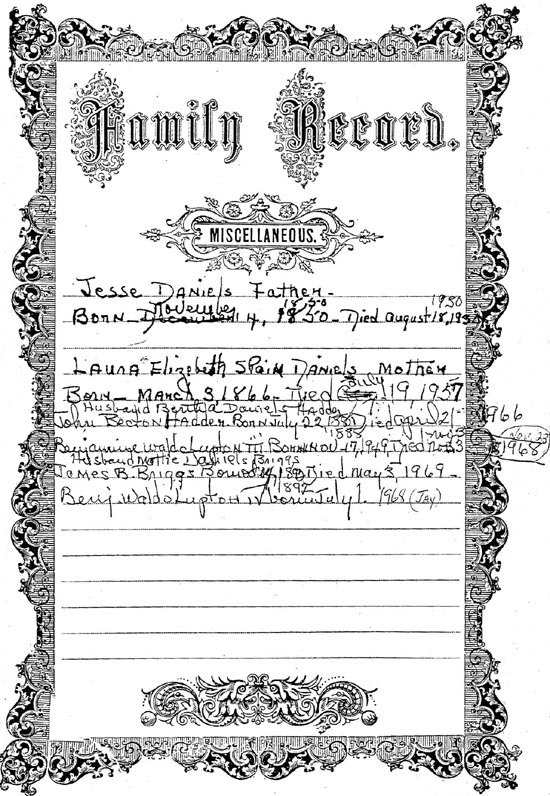 Family Record.
MISCELLANEOUS.
Jesse Daniels Father-
November 1850 1930
Born December 14, 1850 - Died August 18, 1930
Laura Elizabeth Spain Daniels Mother
Born - March 3, 1866 - Died July 19, 1957
Husband Bertha Daniels Hadder
John Becton Hadder Born July 22 1887 Died April 21 - 1966
1888
Benjamine Waldo Lupton III Born Nov. 17, 1949 Died Nov 23 1968
Husband Mottie Daniels Briggs
James B. Briggs Born 1892 Died May 3, 1969 -
1892
Benj. Waldo Lupton IV born July 1. 1968 (Jay)